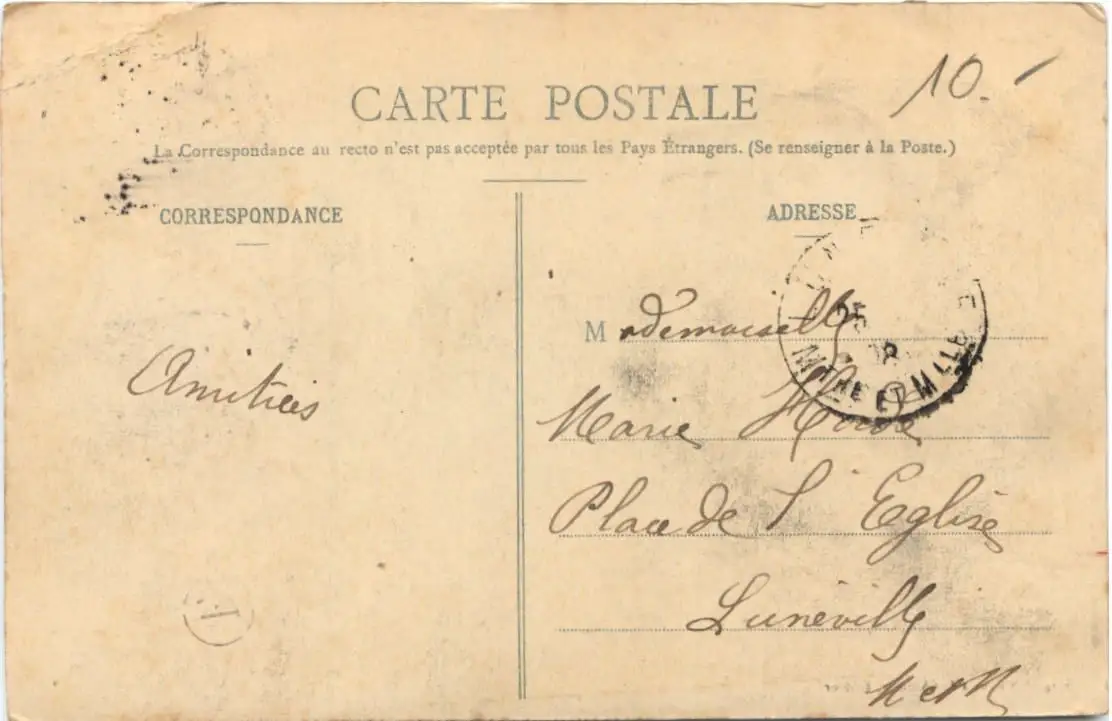 10.-
CARTE POSTALE
La Correspondance au recto n'est pas acceptée par tous les Pays Étrangers. (Se renseigner à la Poste.)
CORRESPONDANCE
ADRESSE
Amitiés
Mademoiselle
Marie
Place de l'Eglise
Lunéville
M et M
25
08
MTHE ET MLLE